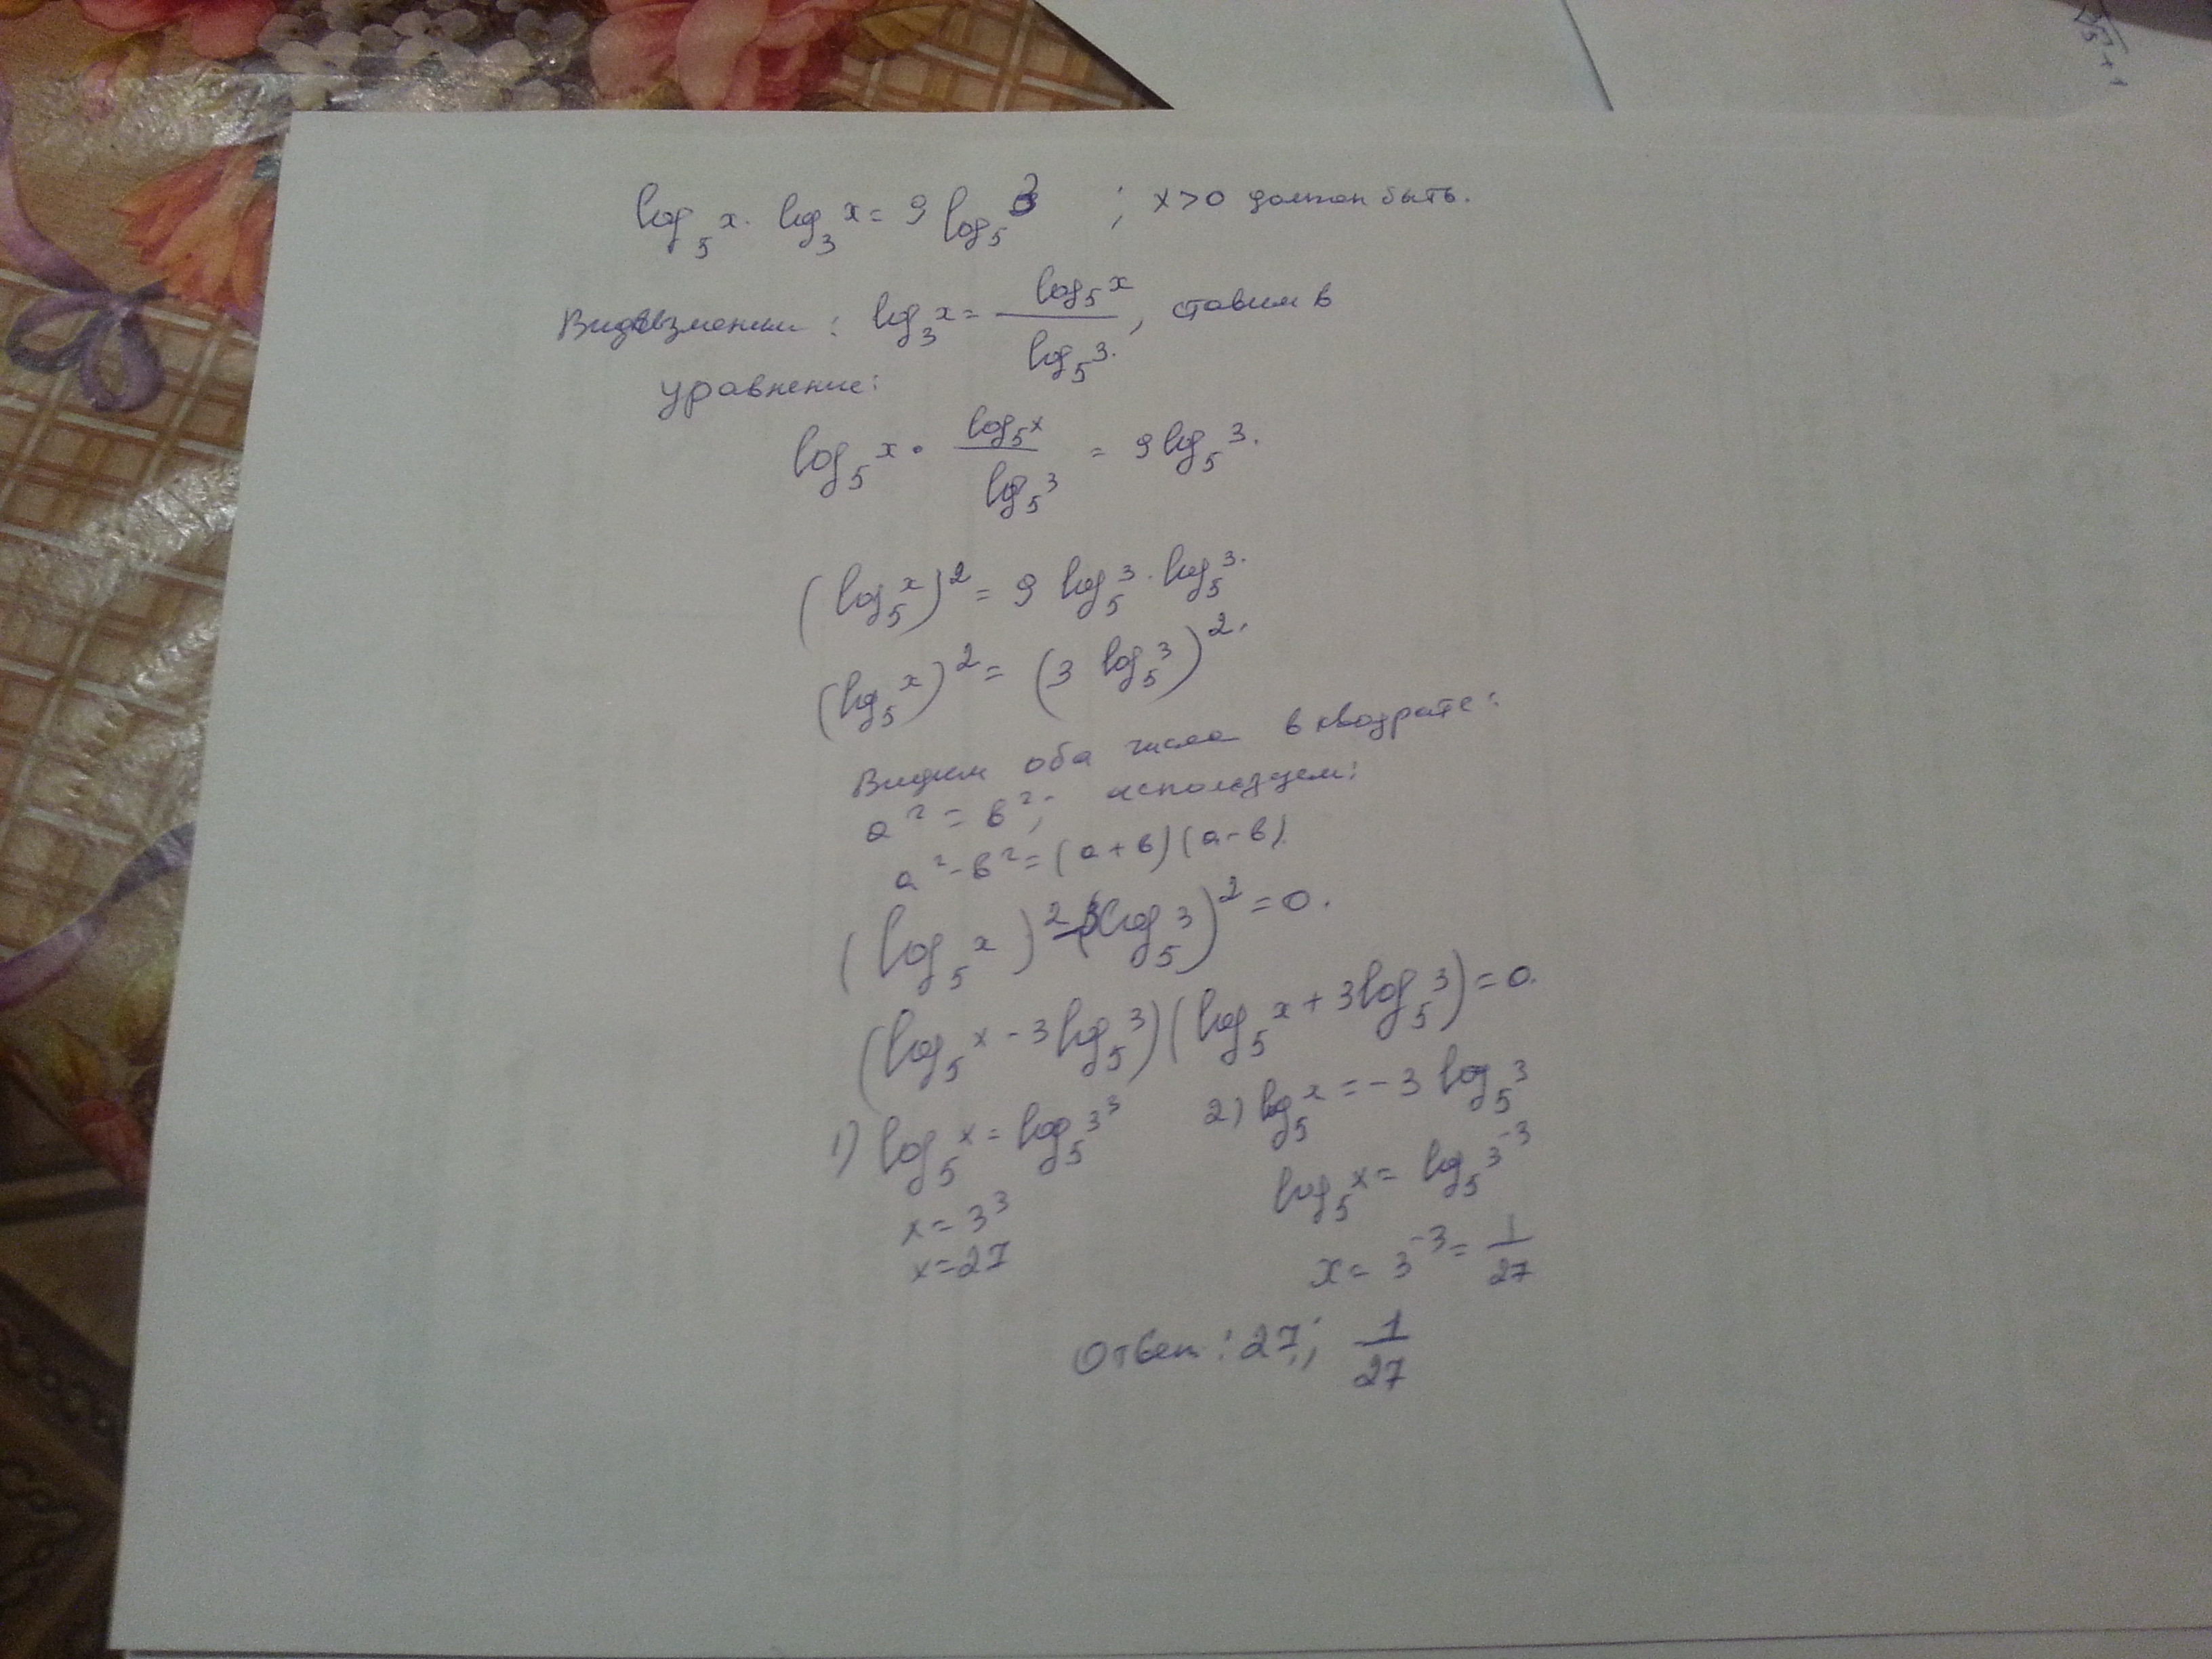 log₅x · log₃x = 9 log₅3 ; x>0 должен быть.
: log₃x = log₅x / log₅3, ставим в
уравнение:
log₅x · log₅x / log₅3 = 9 log₅3.
(log₅x)² = 9 log₅3 · log₅3.
(log₅x)² = (3 log₅3)².
Видим оба числа в квадрате:
a² = в²; используем:
a² - в² = (a + в)(a - в)
(log₅x)² - (3log₅3)² = 0.
(log₅x - 3log₅3)(log₅x + 3log₅3) = 0.
1) log₅x = log₅3³ 2) log₅x = -3 log₅3
x = 3³ log₅x = log₅3⁻³
x = 27 x = 3⁻³ = 1/27
Ответ: 27; 1/27